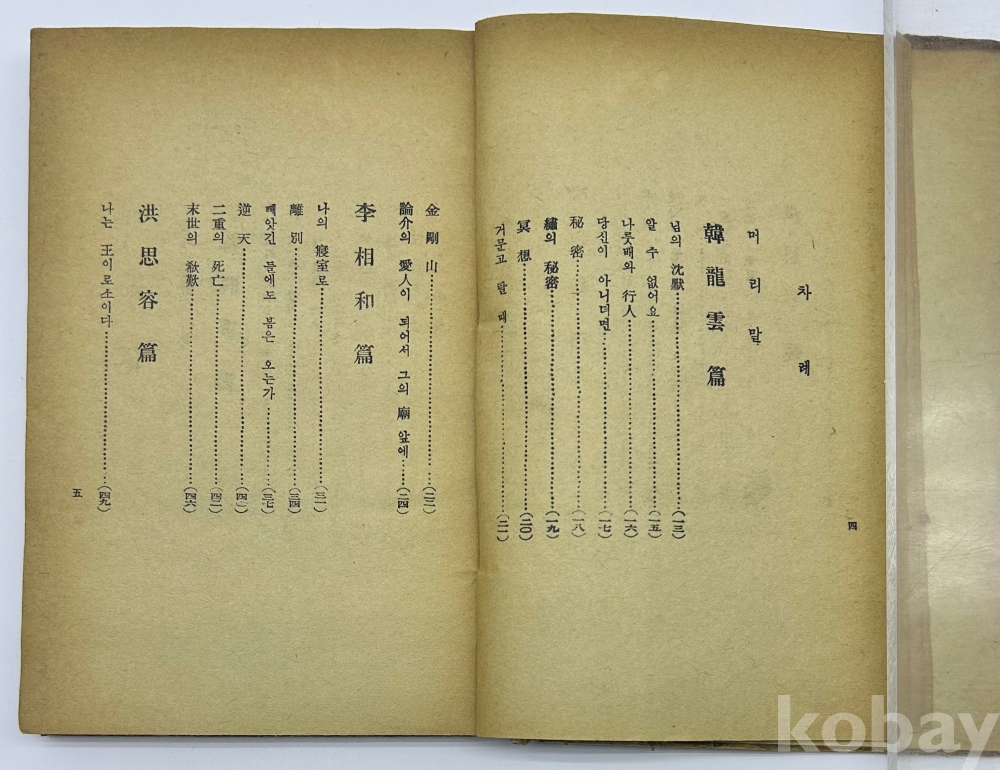 차례
머리말
韓龍雲篇
님의 沈默…………(一三)
알 수 없어요…………(一五)
나룻배와 行人…………(一六)
당신이 아니더면…………(一七)
秘密…………(一八)
繡의 秘密…………(一九)
冥想…………(二〇)
거문고 탈 때…………(二一)
四
金剛山…………(二二)
論介의 愛人이 되어서 그의 廟 앞에……(二四)
李相和篇
나의 寢室로…………(三一)
離別…………(三四)
빼앗긴 들에도 봄은 오는가…………(三七)
逆天…………(四〇)
二重의 死亡…………(四二)
末世의 欷歎…………(四六)
洪思容篇
나는 王이로소이다…………(四九)
五
kobay